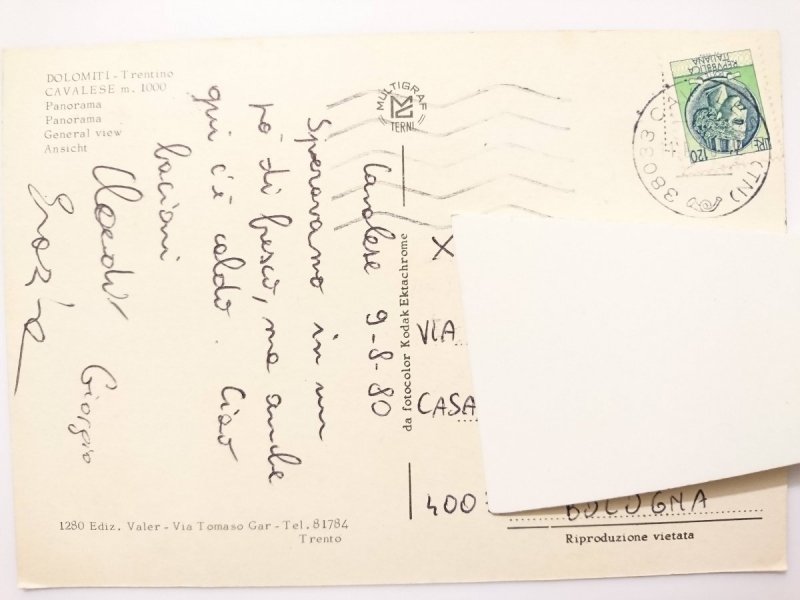 DOLOMITI - Trentino
CAVALESE m. 1000
Panorama
Panorama
General view
Ansicht
MULTIGRAF
TERNI
Cavalese 9-8-80
Speravamo in un
pò di fresco, ma anche
qui c'è caldo. Ciao
bacioni
Giorgio
Grazia
1280 Ediz. Valer - Via Tomaso Gar - Tel. 81784
Trento
da fotocolor Kodak Ektachrome
REPVBBLICA
ITALIANA
LIRE 120
38033 CA
(TN)
X
VIA
CASA
400
BOLOGNA
Riproduzione vietata